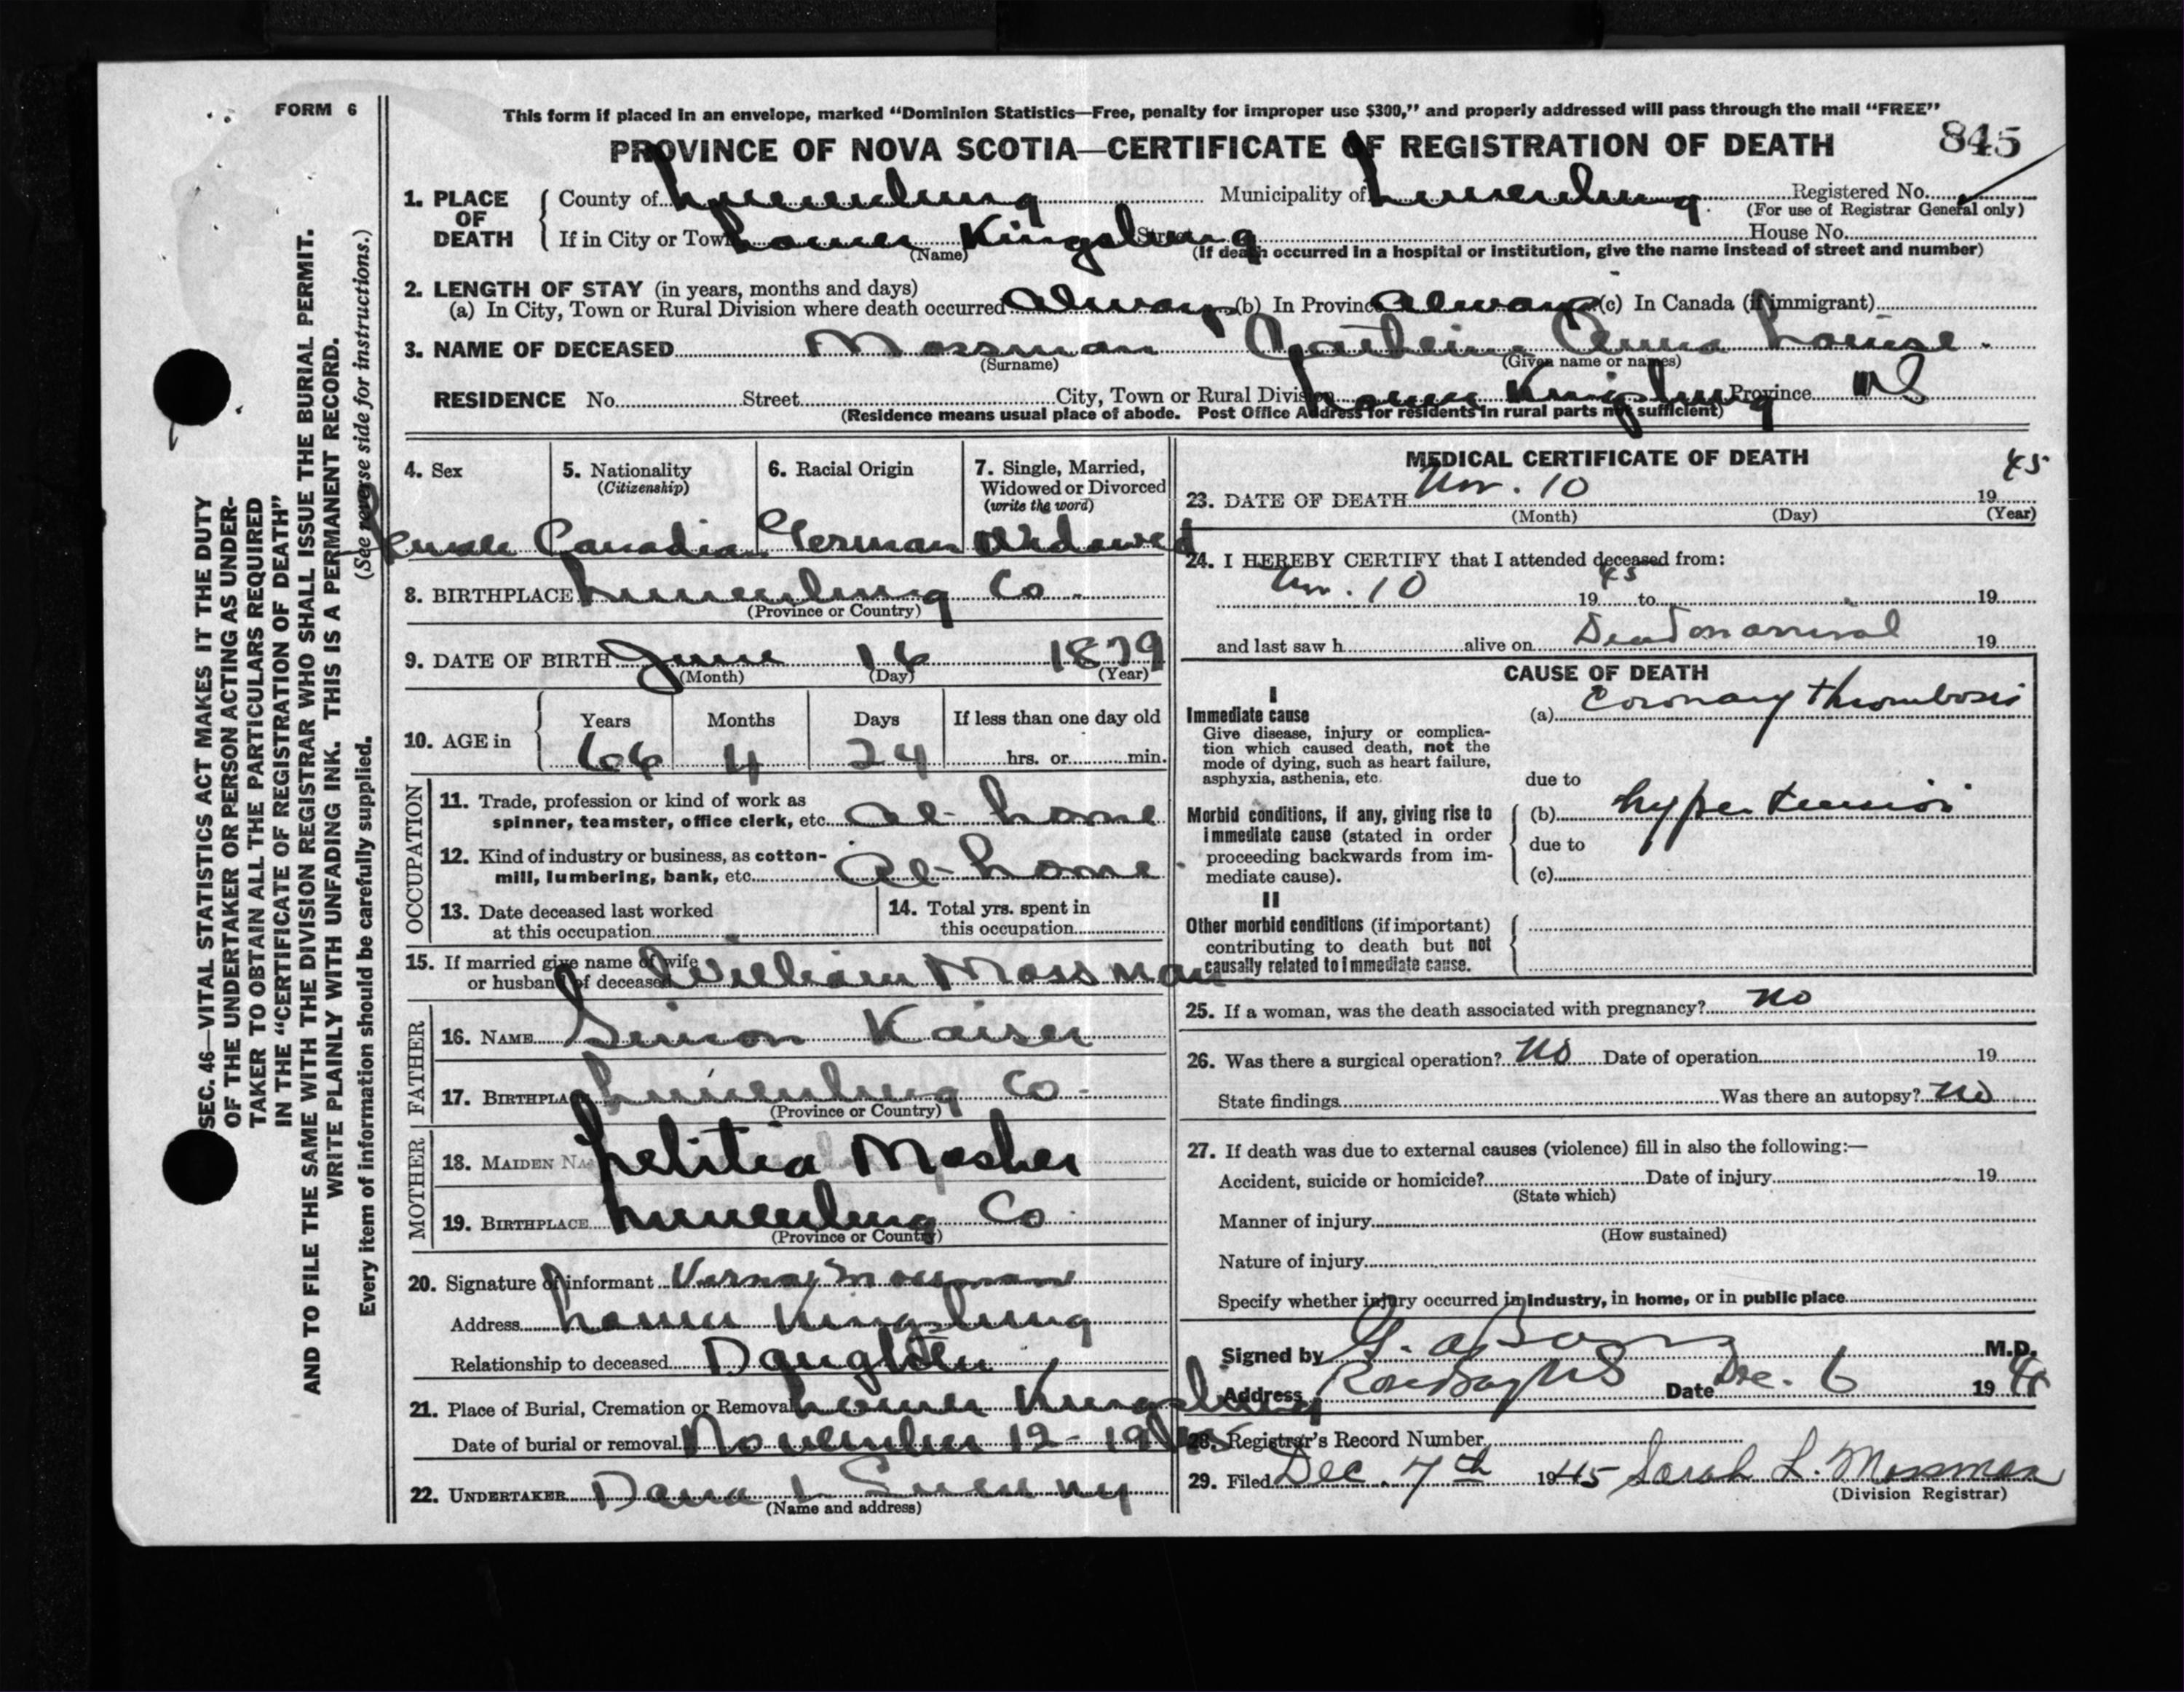 FORM 6
This form if placed in an envelope, marked "Dominion Statistics—Free, penalty for improper use $300," and properly addressed will pass through the mail "FREE"
PROVINCE OF NOVA SCOTIA—CERTIFICATE OF REGISTRATION OF DEATH 845
1. PLACE OF DEATH County of Lunenburg Municipality of Lunenburg Registered No.
(For use of Registrar General only)
If in City or Town Lower Kingsburg Street House No.
(Name) (If death occurred in a hospital or institution, give the name instead of street and number)
2. LENGTH OF STAY (in years, months and days)
(a) In City, Town or Rural Division where death occurred Always (b) In Province Always (c) In Canada (if immigrant)
3. NAME OF DECEASED Mossman Catherine Anna Louise.
(Surname) (Given name or names)
RESIDENCE No. Street City, Town or Rural Division Lower Kingsburg Province NS
(Residence means usual place of abode. Post Office Address for residents in rural parts not sufficient)
4. Sex 5. Nationality (Citizenship) 6. Racial Origin 7. Single, Married, Widowed or Divorced (write the word)
Female Canadian German Widowed
8. BIRTHPLACE Lunenburg Co.
(Province or Country)
9. DATE OF BIRTH June 16 1879
(Month) (Day) (Year)
10. AGE in Years Months Days If less than one day old
66 4 24 hrs. or min.
OCCUPATION
11. Trade, profession or kind of work as
spinner, teamster, office clerk, etc. at home
12. Kind of industry or business, as cotton-
mill, lumbering, bank, etc. At home
13. Date deceased last worked
at this occupation
14. Total yrs. spent in
this occupation
15. If married give name of wife
or husband of deceased William Mossman
FATHER
16. NAME Simon Kaiser
17. BIRTHPLACE Lunenburg Co.
(Province or Country)
MOTHER
18. MAIDEN NAME Letitia Mosher
19. BIRTHPLACE Lunenburg Co.
(Province or Country)
20. Signature of informant Mossman
Address Lower Kingsburg
Relationship to deceased Daughter
21. Place of Burial, Cremation or Removal Lower Kingsburg
Date of burial or removal November 12-1945
22. UNDERTAKER Dana L Sweeny
(Name and address)
MEDICAL CERTIFICATE OF DEATH
23. DATE OF DEATH Nov. 10 1945
(Month) (Day) (Year)
24. I HEREBY CERTIFY that I attended deceased from:
Nov. 10 1945 to 19
and last saw h alive on Dead on arrival 19
CAUSE OF DEATH
I
Immediate cause
Give disease, injury or complica-
tion which caused death, not the
mode of dying, such as heart failure,
asphyxia, asthenia, etc.
(a) Coronary thrombosis
due to
Morbid conditions, if any, giving rise to
immediate cause (stated in order
proceeding backwards from im-
mediate cause).
(b) hypertension
due to
(c)
II
Other morbid conditions (if important)
contributing to death but not
causally related to immediate cause.
25. If a woman, was the death associated with pregnancy? no
26. Was there a surgical operation? No Date of operation 19
State findings Was there an autopsy? No
27. If death was due to external causes (violence) fill in also the following:—
Accident, suicide or homicide? Date of injury 19
(State which)
Manner of injury
(How sustained)
Nature of injury
Specify whether injury occurred in industry, in home, or in public place
Signed by M.D.
Address Rose Bay NS Date Dec. 6 19
28. Registrar's Record Number
29. Filed Dec. 7th 1945 Sarah L. Mossman
(Division Registrar)
SEC. 46—VITAL STATISTICS ACT MAKES IT THE DUTY
OF THE UNDERTAKER OR PERSON ACTING AS UNDER-
TAKER TO OBTAIN ALL THE PARTICULARS REQUIRED
IN THE "CERTIFICATE OF REGISTRATION OF DEATH"
AND TO FILE THE SAME WITH THE DIVISION REGISTRAR WHO SHALL ISSUE THE BURIAL PERMIT.
WRITE PLAINLY WITH UNFADING INK. THIS IS A PERMANENT RECORD.
Every item of information should be carefully supplied. (See reverse side for instructions.)